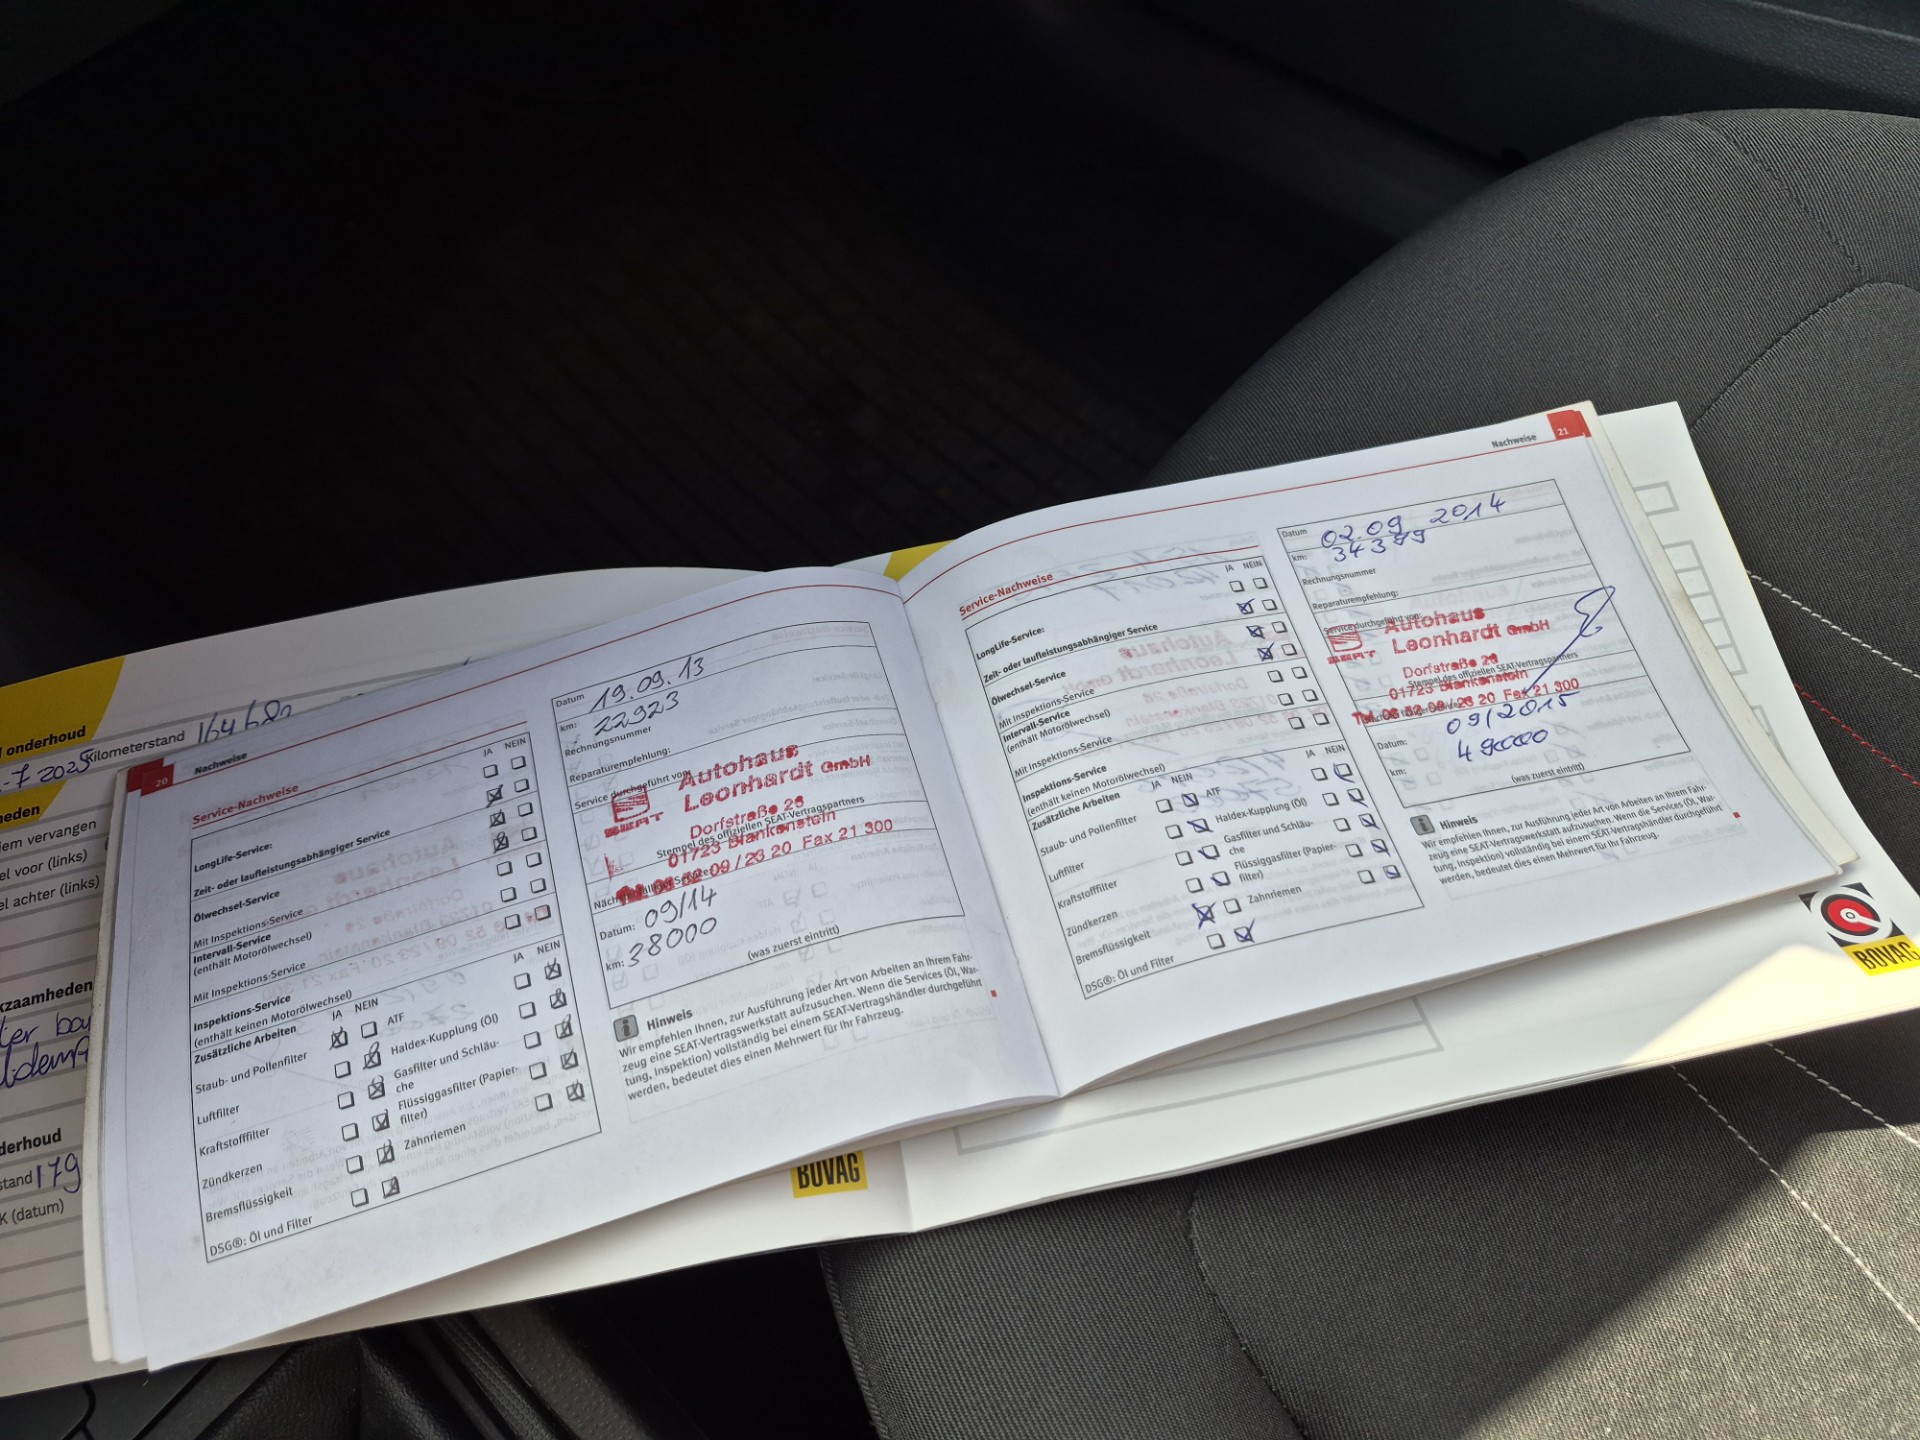 onderhoud
-7 2025
Kilometerstand
heden
iem vervangen
el voor (links)
el achter (links)
kzaamheden
derhoud
stand 179
K (datum)
20
Nachweise
Service-Nachweise
JA NEIN
LongLife-Service:
Zeit- oder laufleistungsabhängiger Service
Ölwechsel-Service
Mit Inspektions-Service
Intervall-Service
(enthält Motorölwechsel)
Mit Inspektions-Service
Inspektions-Service
(enthält keinen Motorölwechsel)
Zusätzliche Arbeiten
JA NEIN
JA NEIN
Staub- und Pollenfilter
Luftfilter
Kraftstofffilter
Zündkerzen
Bremsflüssigkeit
DSG®: Öl und Filter
ATF
Haldex-Kupplung (Öl)
Gasfilter und Schläu-
che
Flüssiggasfilter (Papier-
filter)
Zahnriemen
Datum 19.09.13
km: 22923
Rechnungsnummer
Reparaturempfehlung:
Service durchgeführt von:
SEAT
Autohaus
Leonhardt GmbH
Dorfstraße 26
Stempel des offiziellen SEAT-Vertragspartners
01723 Blankenstein
09/23 20 Fax 21 300
Datum: 09/14
km: 38000
(was zuerst eintritt)
Hinweis
Wir empfehlen Ihnen, zur Ausführung jeder Art von Arbeiten an Ihrem Fahr-
zeug eine SEAT-Vertragswerkstatt aufzusuchen. Wenn die Services (Öl, War-
tung, Inspektion) vollständig bei einem SEAT-Vertragshändler durchgeführt
werden, bedeutet dies einen Mehrwert für Ihr Fahrzeug.
Nachweise
21
Service-Nachweise
JA NEIN
LongLife-Service:
Zeit- oder laufleistungsabhängiger Service
Ölwechsel-Service
Mit Inspektions-Service
Intervall-Service
(enthält Motorölwechsel)
Mit Inspektions-Service
Inspektions-Service
(enthält keinen Motorölwechsel)
Zusätzliche Arbeiten
JA NEIN
JA NEIN
Staub- und Pollenfilter
Luftfilter
Kraftstofffilter
Zündkerzen
Bremsflüssigkeit
DSG®: Öl und Filter
ATF
Haldex-Kupplung (Öl)
Gasfilter und Schläu-
che
Flüssiggasfilter (Papier-
filter)
Zahnriemen
Datum 02.09 2014
km:
Rechnungsnummer
Reparaturempfehlung:
Service durchgeführt von:
SEAT
Autohaus
Leonhardt GmbH
Dorfstraße 26
Stempel des offiziellen SEAT-Vertragspartners
01723 Blankenstein
20 Fax 21 300
Datum: 09/2015
km:
(was zuerst eintritt)
Hinweis
Wir empfehlen Ihnen, zur Ausführung jeder Art von Arbeiten an Ihrem Fahr-
zeug eine SEAT-Vertragswerkstatt aufzusuchen. Wenn die Services (Öl, War-
tung, Inspektion) vollständig bei einem SEAT-Vertragshändler durchgeführt
werden, bedeutet dies einen Mehrwert für Ihr Fahrzeug.
BOVAG
BOVAG